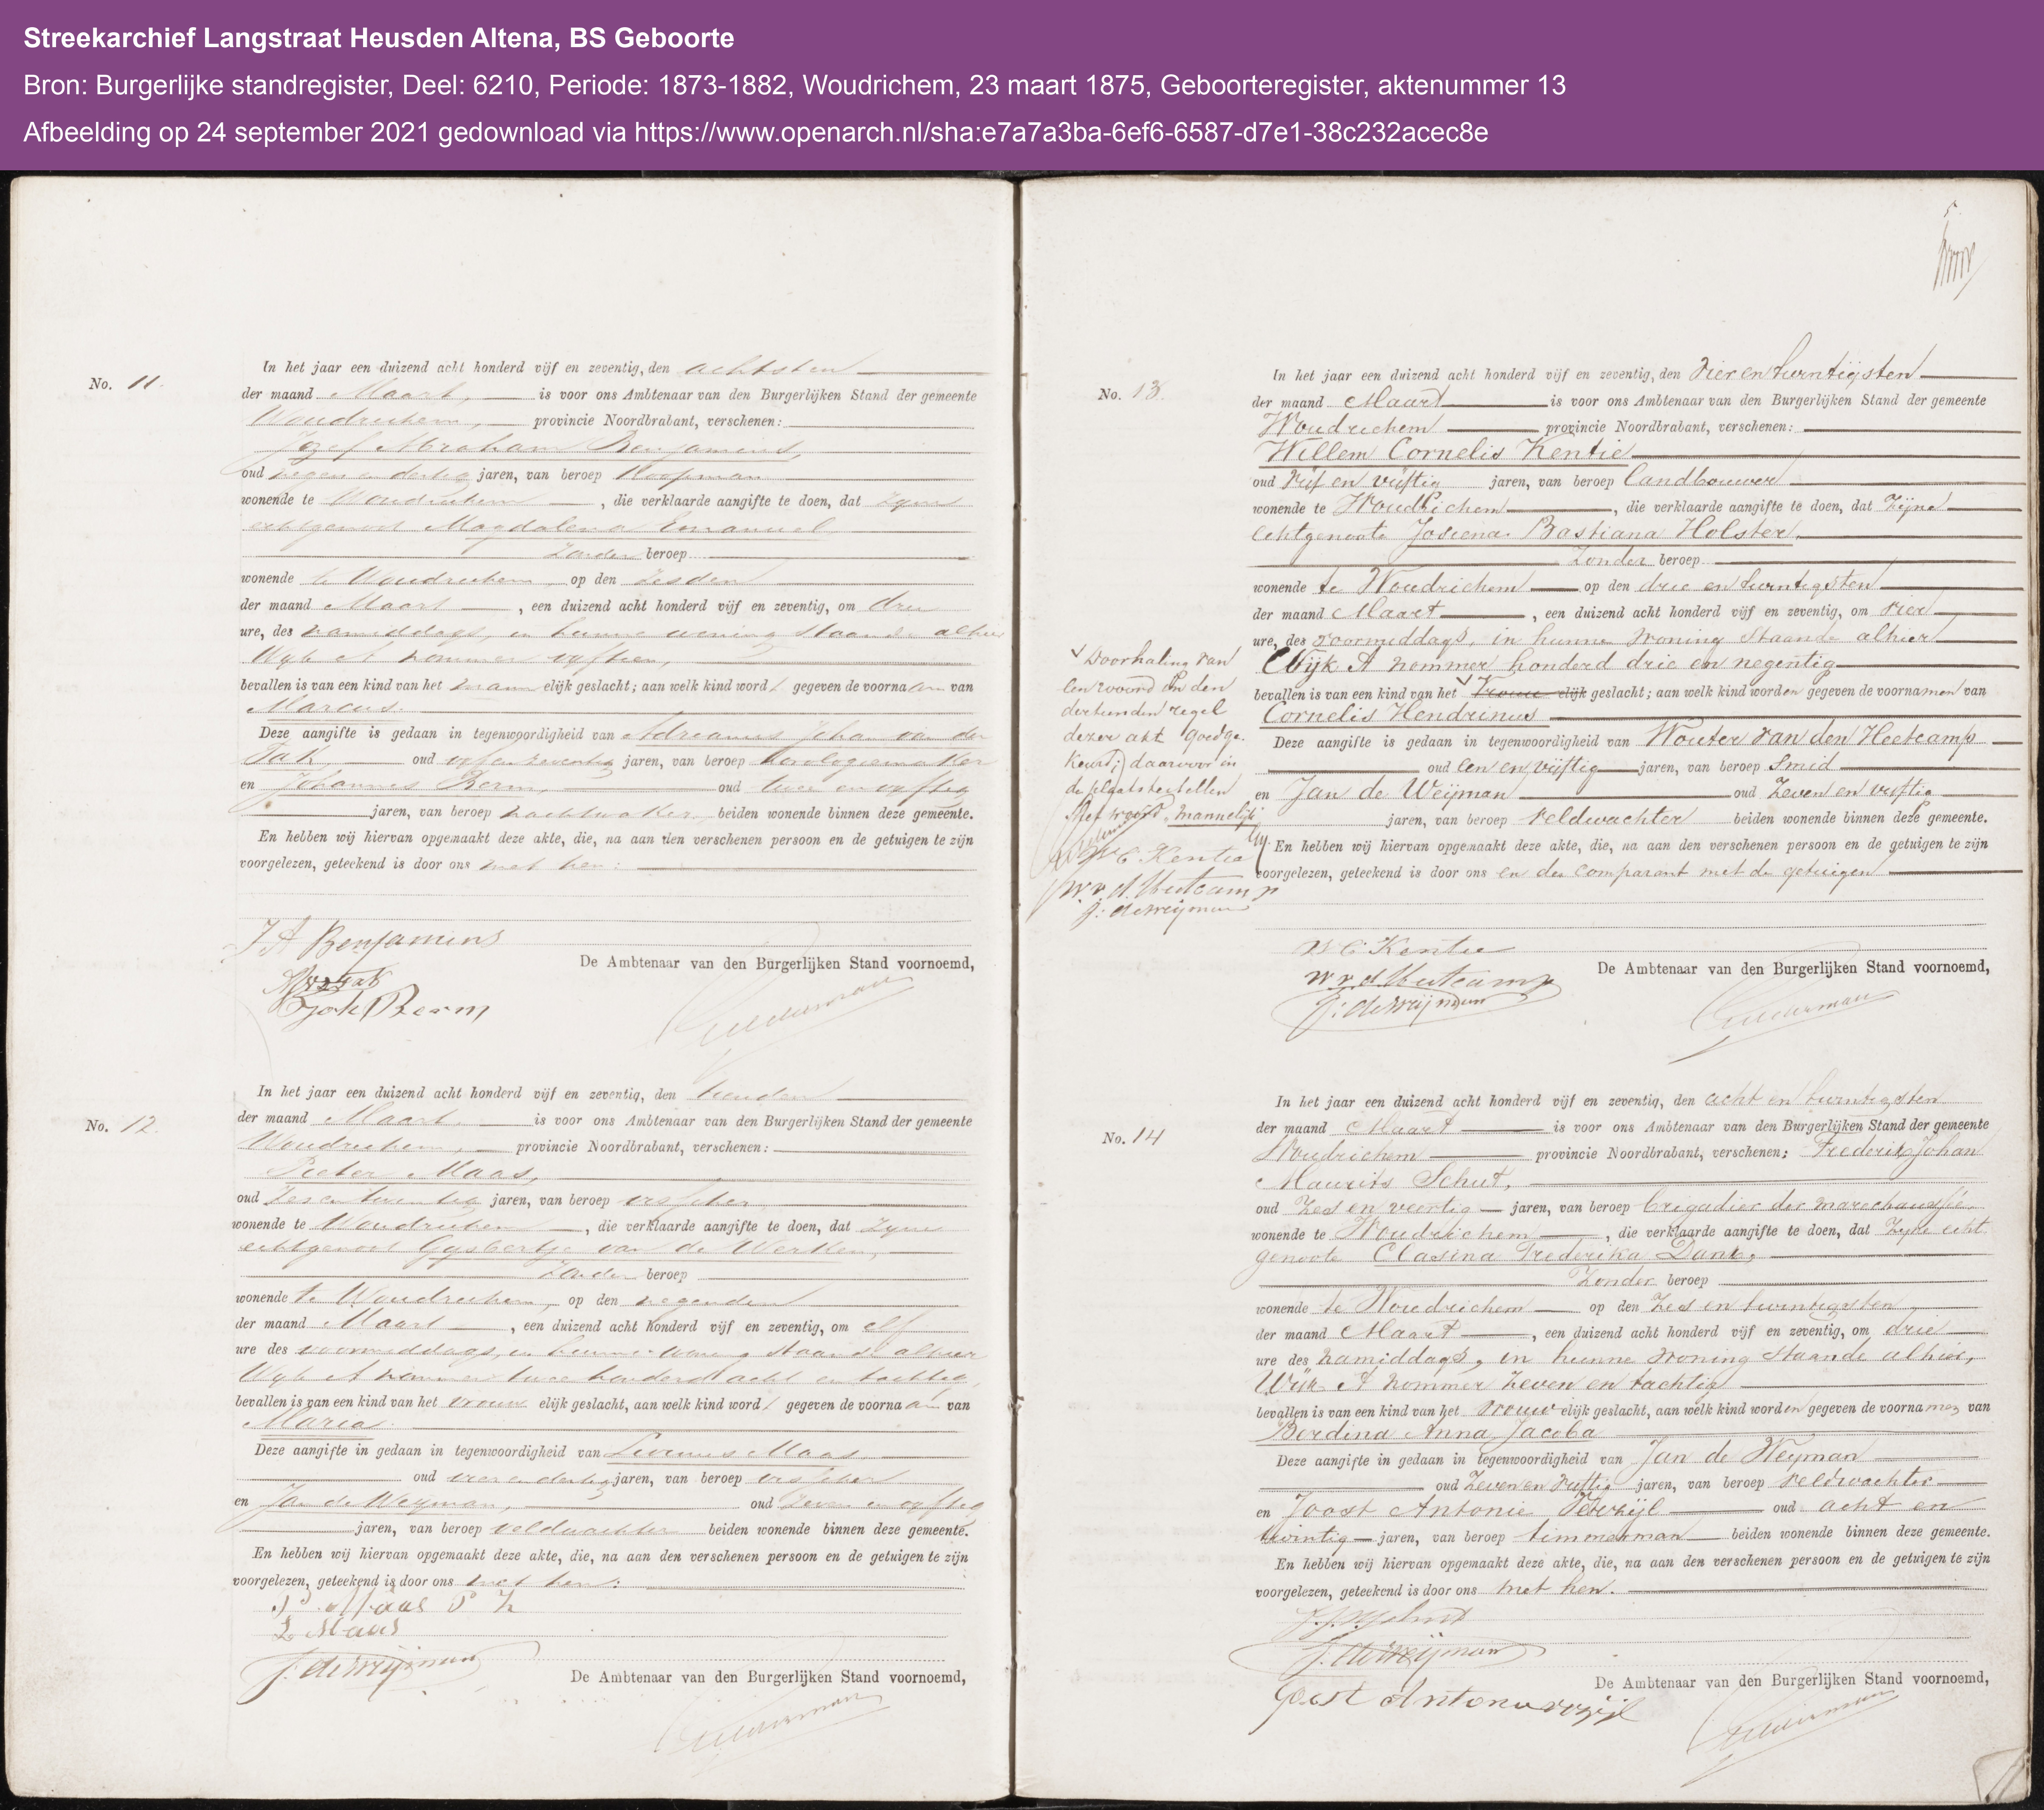 Streekarchief Langstraat Heusden Altena, BS Geboorte
Bron: Burgerlijke standregister, Deel: 6210, Periode: 1873-1882, Woudrichem, 23 maart 1875, Geboorteregister, aktenummer 13
Afbeelding op 24 september 2021 gedownload via https://www.openarch.nl/sha:e7a7a3ba-6ef6-6587-d7e1-38c232acec8e
No. 11.
In het jaar een duizend acht honderd vijf en zeventig, den achtsten
der maand Maart, is voor ons Ambtenaar van den Burgerlijken Stand der gemeente
Woudrichem, provincie Noordbrabant, verschenen:
Jozef Abraham Benjamens,
oud negen en dertig jaren, van beroep Koopman
wonende te Woudrichem, die verklaarde aangifte te doen, dat zyne
echtgenoot Magdalena Emanuel
Zonder beroep
wonende te Woudrichem, op den zesden
der maand Maart, een duizend acht honderd vijf en zeventig, om drie
ure, des namiddags, in hunne woning staande alhier
Wyk A nommer vyftien,
bevallen is van een kind van het mann elijk geslacht; aan welk kind word gegeven de voornaam van
Marcus.
Deze aangifte is gedaan in tegenwoordigheid van Adrianus Johan van der
Tak, oud vyf en zeventig jaren, van beroep horologiemaker
en Johannes Berm, oud twee en vyftig
jaren, van beroep nachtwaker, beiden wonende binnen deze gemeente.
En hebben wij hiervan opgemaakt deze akte, die, na aan den verschenen persoon en de getuigen te zijn
voorgelezen, geteekend is door ons met hen:
J A Benjamens
Joh Berm
De Ambtenaar van den Burgerlijken Stand voornoemd,
No. 12.
In het jaar een duizend acht honderd vijf en zeventig, den tienden
der maand Maart, is voor ons Ambtenaar van den Burgerlijken Stand der gemeente
Woudrichem, provincie Noordbrabant, verschenen:
Pieter Maas,
oud zes en twintig jaren, van beroep visscher,
wonende te Woudrichem, die verklaarde aangifte te doen, dat zyne
echtgenoot Gysbertje van de Werken,
Zonder beroep
wonende te Woudrichem, op den negenden
der maand Maart, een duizend acht honderd vijf en zeventig, om elf
ure des voormiddags, in hunne woning staande alhier
Wyk A nommer twee honderd acht en tachtig,
bevallen is van een kind van het vrouw elijk geslacht, aan welk kind word gegeven de voornaam van
Maria.
Deze aangifte in gedaan in tegenwoordigheid van Maas
oud vier en dertig jaren, van beroep visscher
en Jan de Weyman, oud zeven en vyftig
jaren, van beroep veldwachter beiden wonende binnen deze gemeente.
En hebben wij hiervan opgemaakt deze akte, die, na aan den verschenen persoon en de getuigen te zijn
voorgelezen, geteekend is door ons met hen:
P Maas P Z
L Maas
J: de Weijman
De Ambtenaar van den Burgerlijken Stand voornoemd,
5
No. 13.
In het jaar een duizend acht honderd vijf en zeventig, den vier en twintigsten
der maand Maart is voor ons Ambtenaar van den Burgerlijken Stand der gemeente
Woudrichem provincie Noordbrabant, verschenen:
Willem Cornelis Kentie
oud vijf en vijftig jaren, van beroep Landbouwer
wonende te Woudrichem, die verklaarde aangifte te doen, dat zijne
echtgenoote Josiena Bastiana Holster,
Zonder beroep
wonende te Woudrichem op den drie en twintigsten
der maand Maart, een duizend acht honderd vijf en zeventig, om vier
ure, des voormiddags, in hunne woning staande alhier
Wijk A nommer honderd drie en negentig
bevallen is van een kind van het Vrouw elijk geslacht; aan welk kind worden gegeven de voornamen van
Cornelis Hendrinus
Deze aangifte is gedaan in tegenwoordigheid van Wouter van den Heetcamp
oud een en vijftig jaren, van beroep Smid
en Jan de Weijman oud zeven en vijftig
jaren, van beroep veldwachter beiden wonende binnen deze gemeente.
En hebben wij hiervan opgemaakt deze akte, die, na aan den verschenen persoon en de getuigen te zijn
voorgelezen, geteekend is door ons en den comparant met de getuigen
Doorhaling van
een woord in den
dertienden regel
dezer akt goedge-
keurd; daarvoor in
de plaats te stellen
het woord „mannelijk"
W C Kentie
W. v. d. Heetcamp
J: de Weijman
W C Kentie
W. v. d. Heetcamp
J: de Weijman
De Ambtenaar van den Burgerlijken Stand voornoemd,
No. 14
In het jaar een duizend acht honderd vijf en zeventig, den acht en twintigsten
der maand Maart is voor ons Ambtenaar van den Burgerlijken Stand der gemeente
Woudrichem provincie Noordbrabant, verschenen: Frederik Johan
Maurits Schut,
oud zes en veertig jaren, van beroep brigadier der marechaussée
wonende te Woudrichem, die verklaarde aangifte te doen, dat zyne echt
genoote Clasina Frederika
Zonder beroep
wonende te Woudrichem op den zes en twintigsten
der maand Maart, een duizend acht honderd vijf en zeventig, om drie
ure des namiddags, in hunne woning staande alhier,
Wijk A nommer zeven en tachtig
bevallen is van een kind van het vrouw elijk geslacht, aan welk kind worden gegeven de voornamen van
Berdina Anna Jacoba
Deze aangifte in gedaan in tegenwoordigheid van Jan de Weyman
oud zeven en vijftig jaren, van beroep veldwachter
en Joost Antonie Verzijl oud acht en
twintig jaren, van beroep timmerman beiden wonende binnen deze gemeente.
En hebben wij hiervan opgemaakt deze akte, die, na aan den verschenen persoon en de getuigen te zijn
voorgelezen, geteekend is door ons met hen.
J: de Weijman
Joost Antonie Verzijl
De Ambtenaar van den Burgerlijken Stand voornoemd,